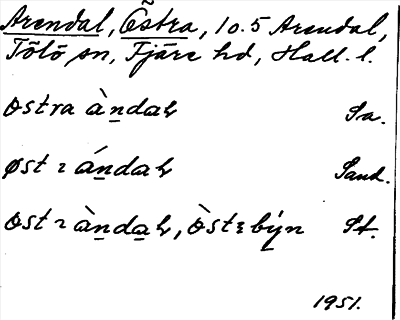 Arendal, Östra, 10.5 Arendal,
Tölö sn, Fjäre hd, Hall. l.
østra àndaɫ Sa.
øst ɿ ándaɫ Sand.
øst ɿ àndaɫ, òstɿbýn St.
1951.